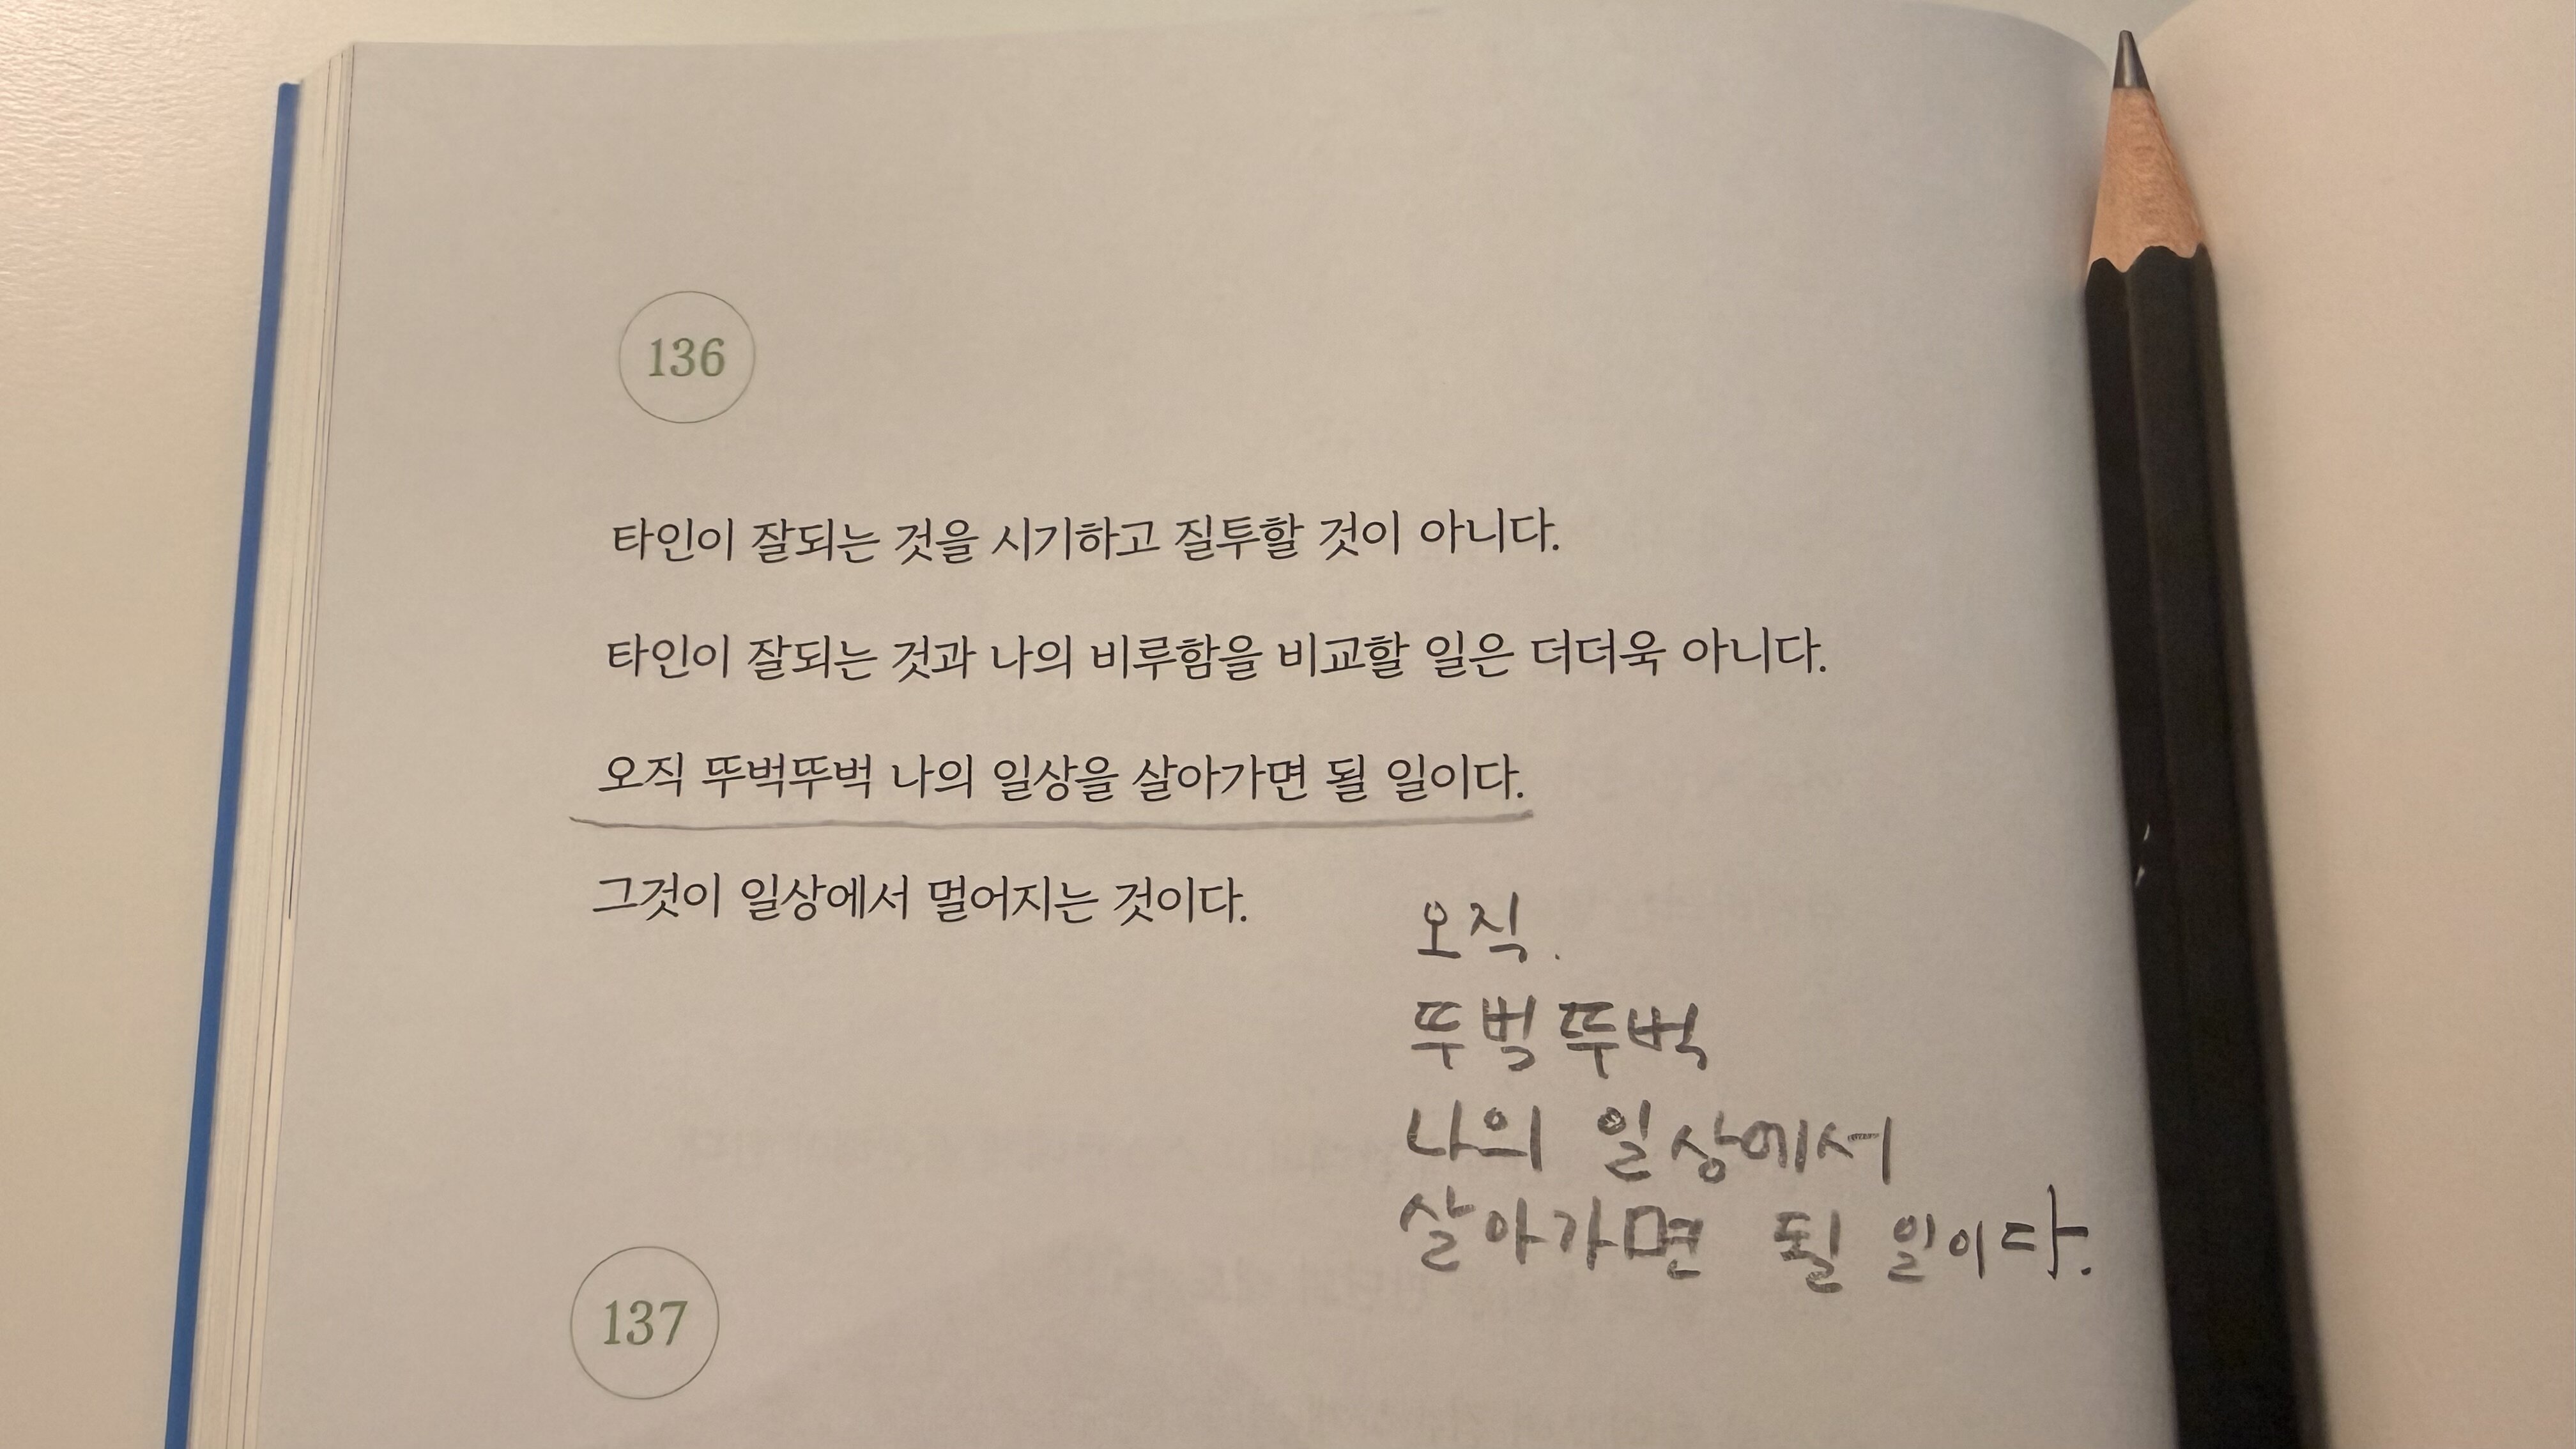 136
타인이 잘되는 것을 시기하고 질투할 것이 아니다.
타인이 잘되는 것과 나의 비루함을 비교할 일은 더더욱 아니다.
오직 뚜벅뚜벅 나의 일상을 살아가면 될 일이다.
그것이 일상에서 멀어지는 것이다.
오직.
뚜벅뚜벅
나의 일상에서
살아가면 될 일이다.
137